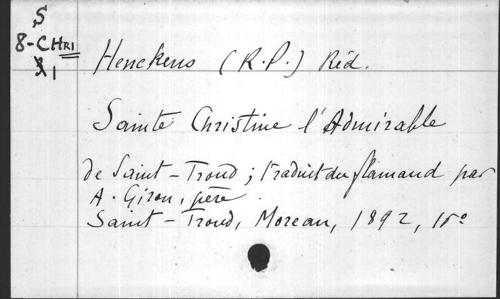 S
8-CHRI
X1
Henckens (R.P.) Réd.
Sainte Christine l'Admirable
de Saint-Trond; traduit du flamand par
A. Giron, père.
Saint-Trond, Moreau, 1892, 15°